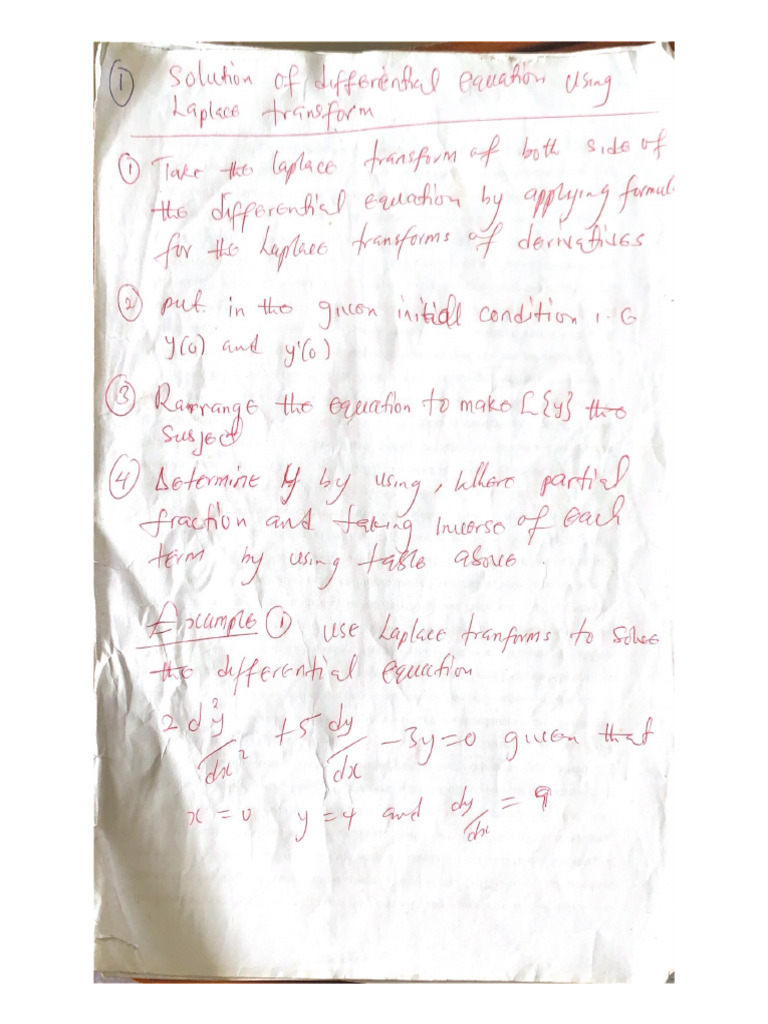 ① Solution of differential equation using
Laplace transform
① Take the laplace transform of both side of
the differential equation by applying formul
for the Laplace transforms of derivatives
② put in the given initial condition i.e
y(0) and y'(0)
③ Rarrange the equation to make L{y} the
subject
④ Determine y by using, where partial
fraction and taking inverse of each
term by using table above.
Example ① use Laplace tranforms to solve
the differential equation
2 d²y/dx² + 5 dy/dx - 3y = 0 given that
x = 0 y = 4 and dy/dx = 9